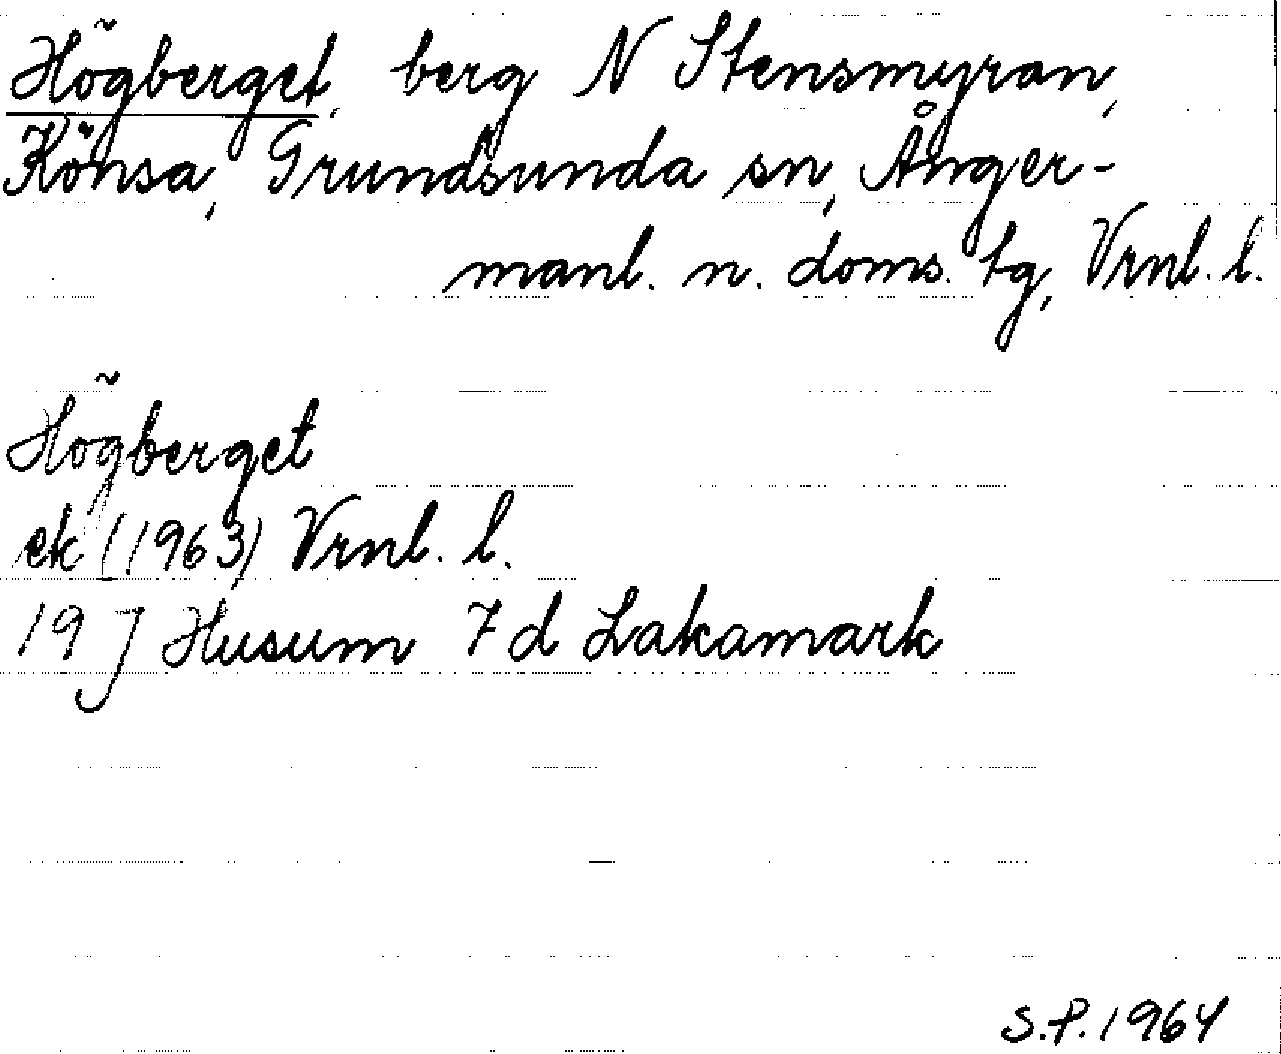 Högberget, berg N Stensmyran,
Könsa, Grundsunda sn, Ånger-
manl. n. doms. tg, Vrnl. l.
Högberget
ek (1963) Vrnl. l.
19 J Husum 7 d Lakamark
S.P. 1964